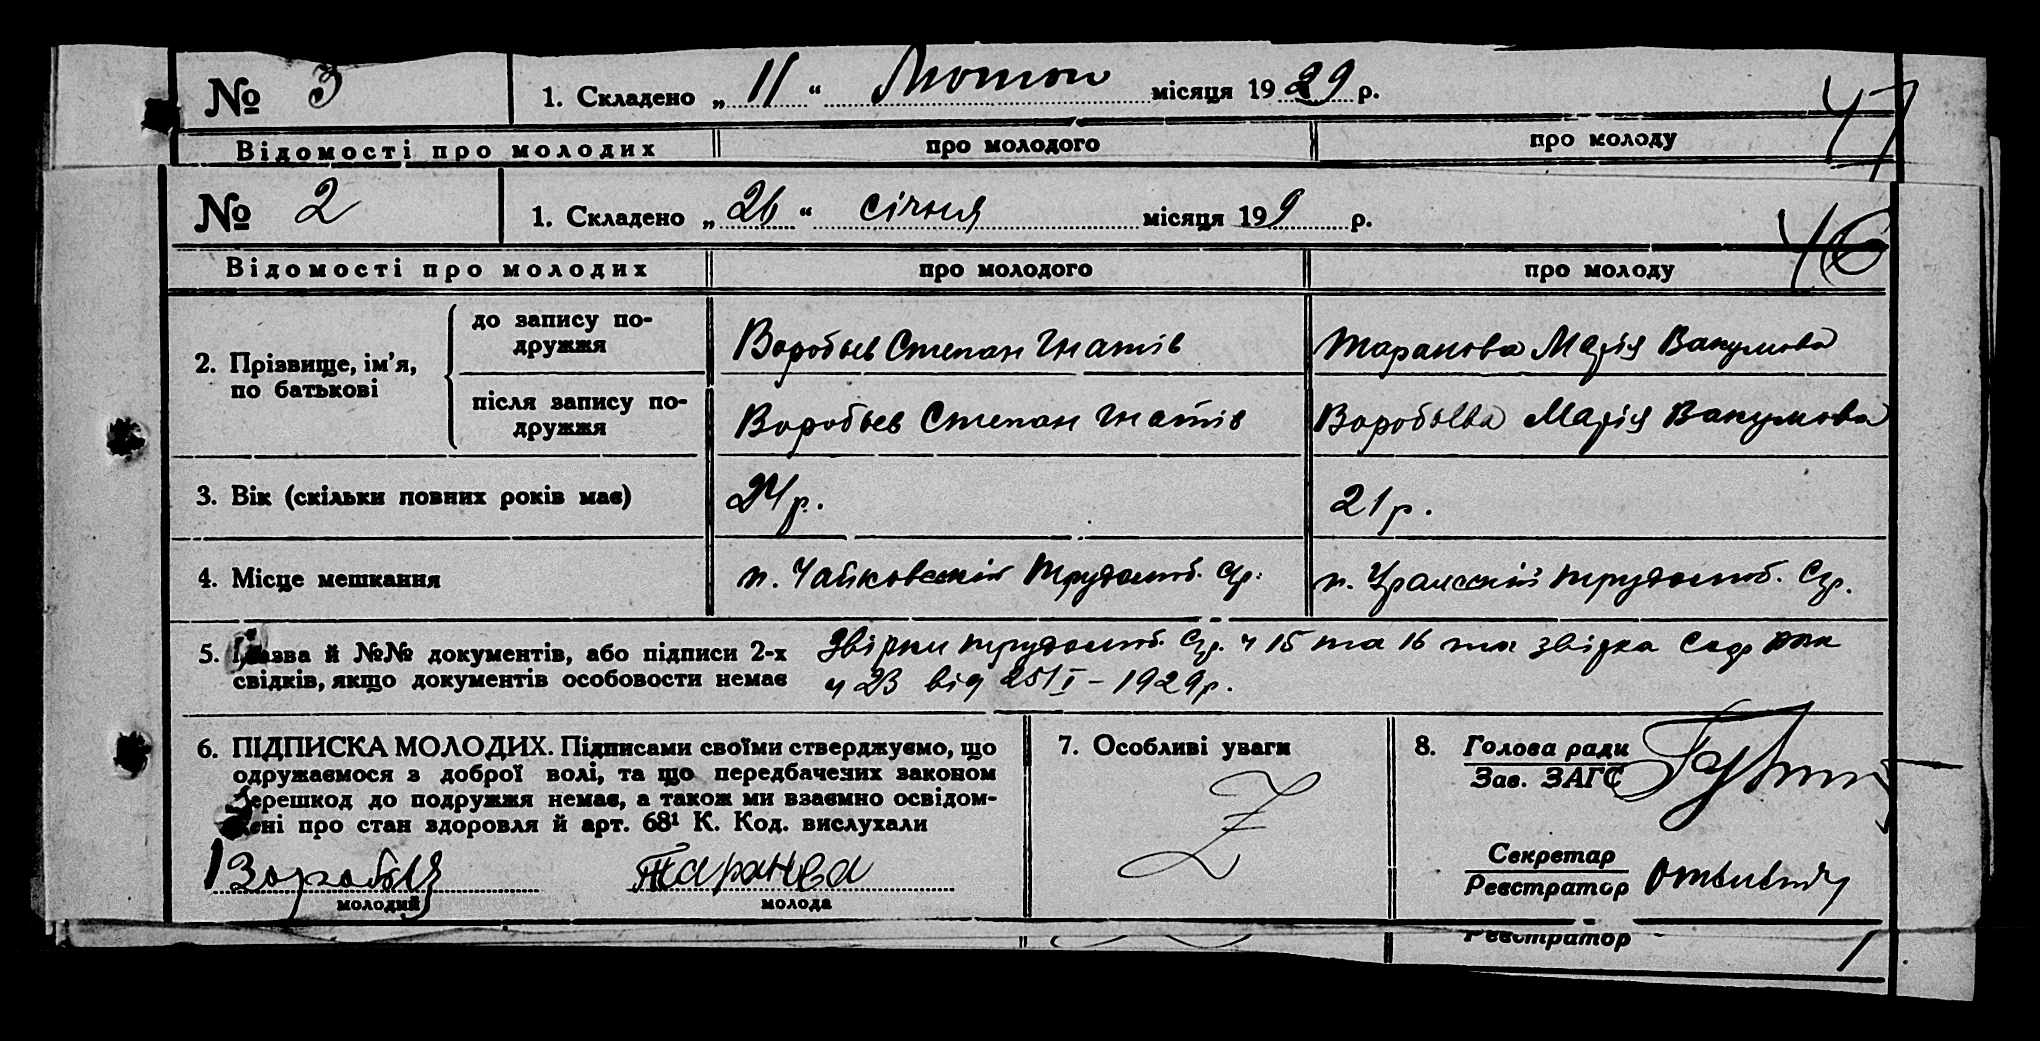 № 3 1. Складено „ 11 “ Лютого місяця 19 29 р. 47
Відомості про молодих про молодого про молоду
№ 2 1. Складено „ 26 “ січня місяця 19 9 р. 46
Відомості про молодих про молодого про молоду
2. Прізвище, ім’я, по батькові
до запису по-
дружжя
Воробьев Степан Гнатів Таранова Марія Вакумова
після запису по-
дружжя
Воробьев Степан Гнатів Воробьева Марія Вакумова
3. Вік (скільки повних років має) 24 р. 21 р.
4. Місце мешкання п. Чайковский п.
5. Назва й №№ документів, або підписи 2-х Звірки ч 15 та 16 та звідка
свідків, якщо документів особовости немає ч 23 від 25/I – 1929 р.
6. ПІДПИСКА МОЛОДИХ. Підписами своїми стверджуємо, що
одружаємося з доброї волі, та що передбачених законом
перешкод до подружжя немає, а також ми взаємно освідом-
лені про стан здоровля й арт. 68¹ К. Код. вислухали
Таранва
молодий молода
7. Особливі уваги
Z
8. Голова ради
Зав. ЗАГС
Секретар
Реєстратор
Реєстратор